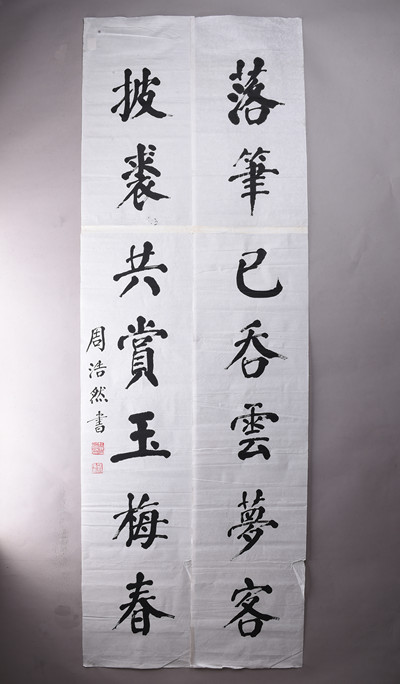 落筆已吞雲夢客
披裘共賞玉梅春
周浩然書